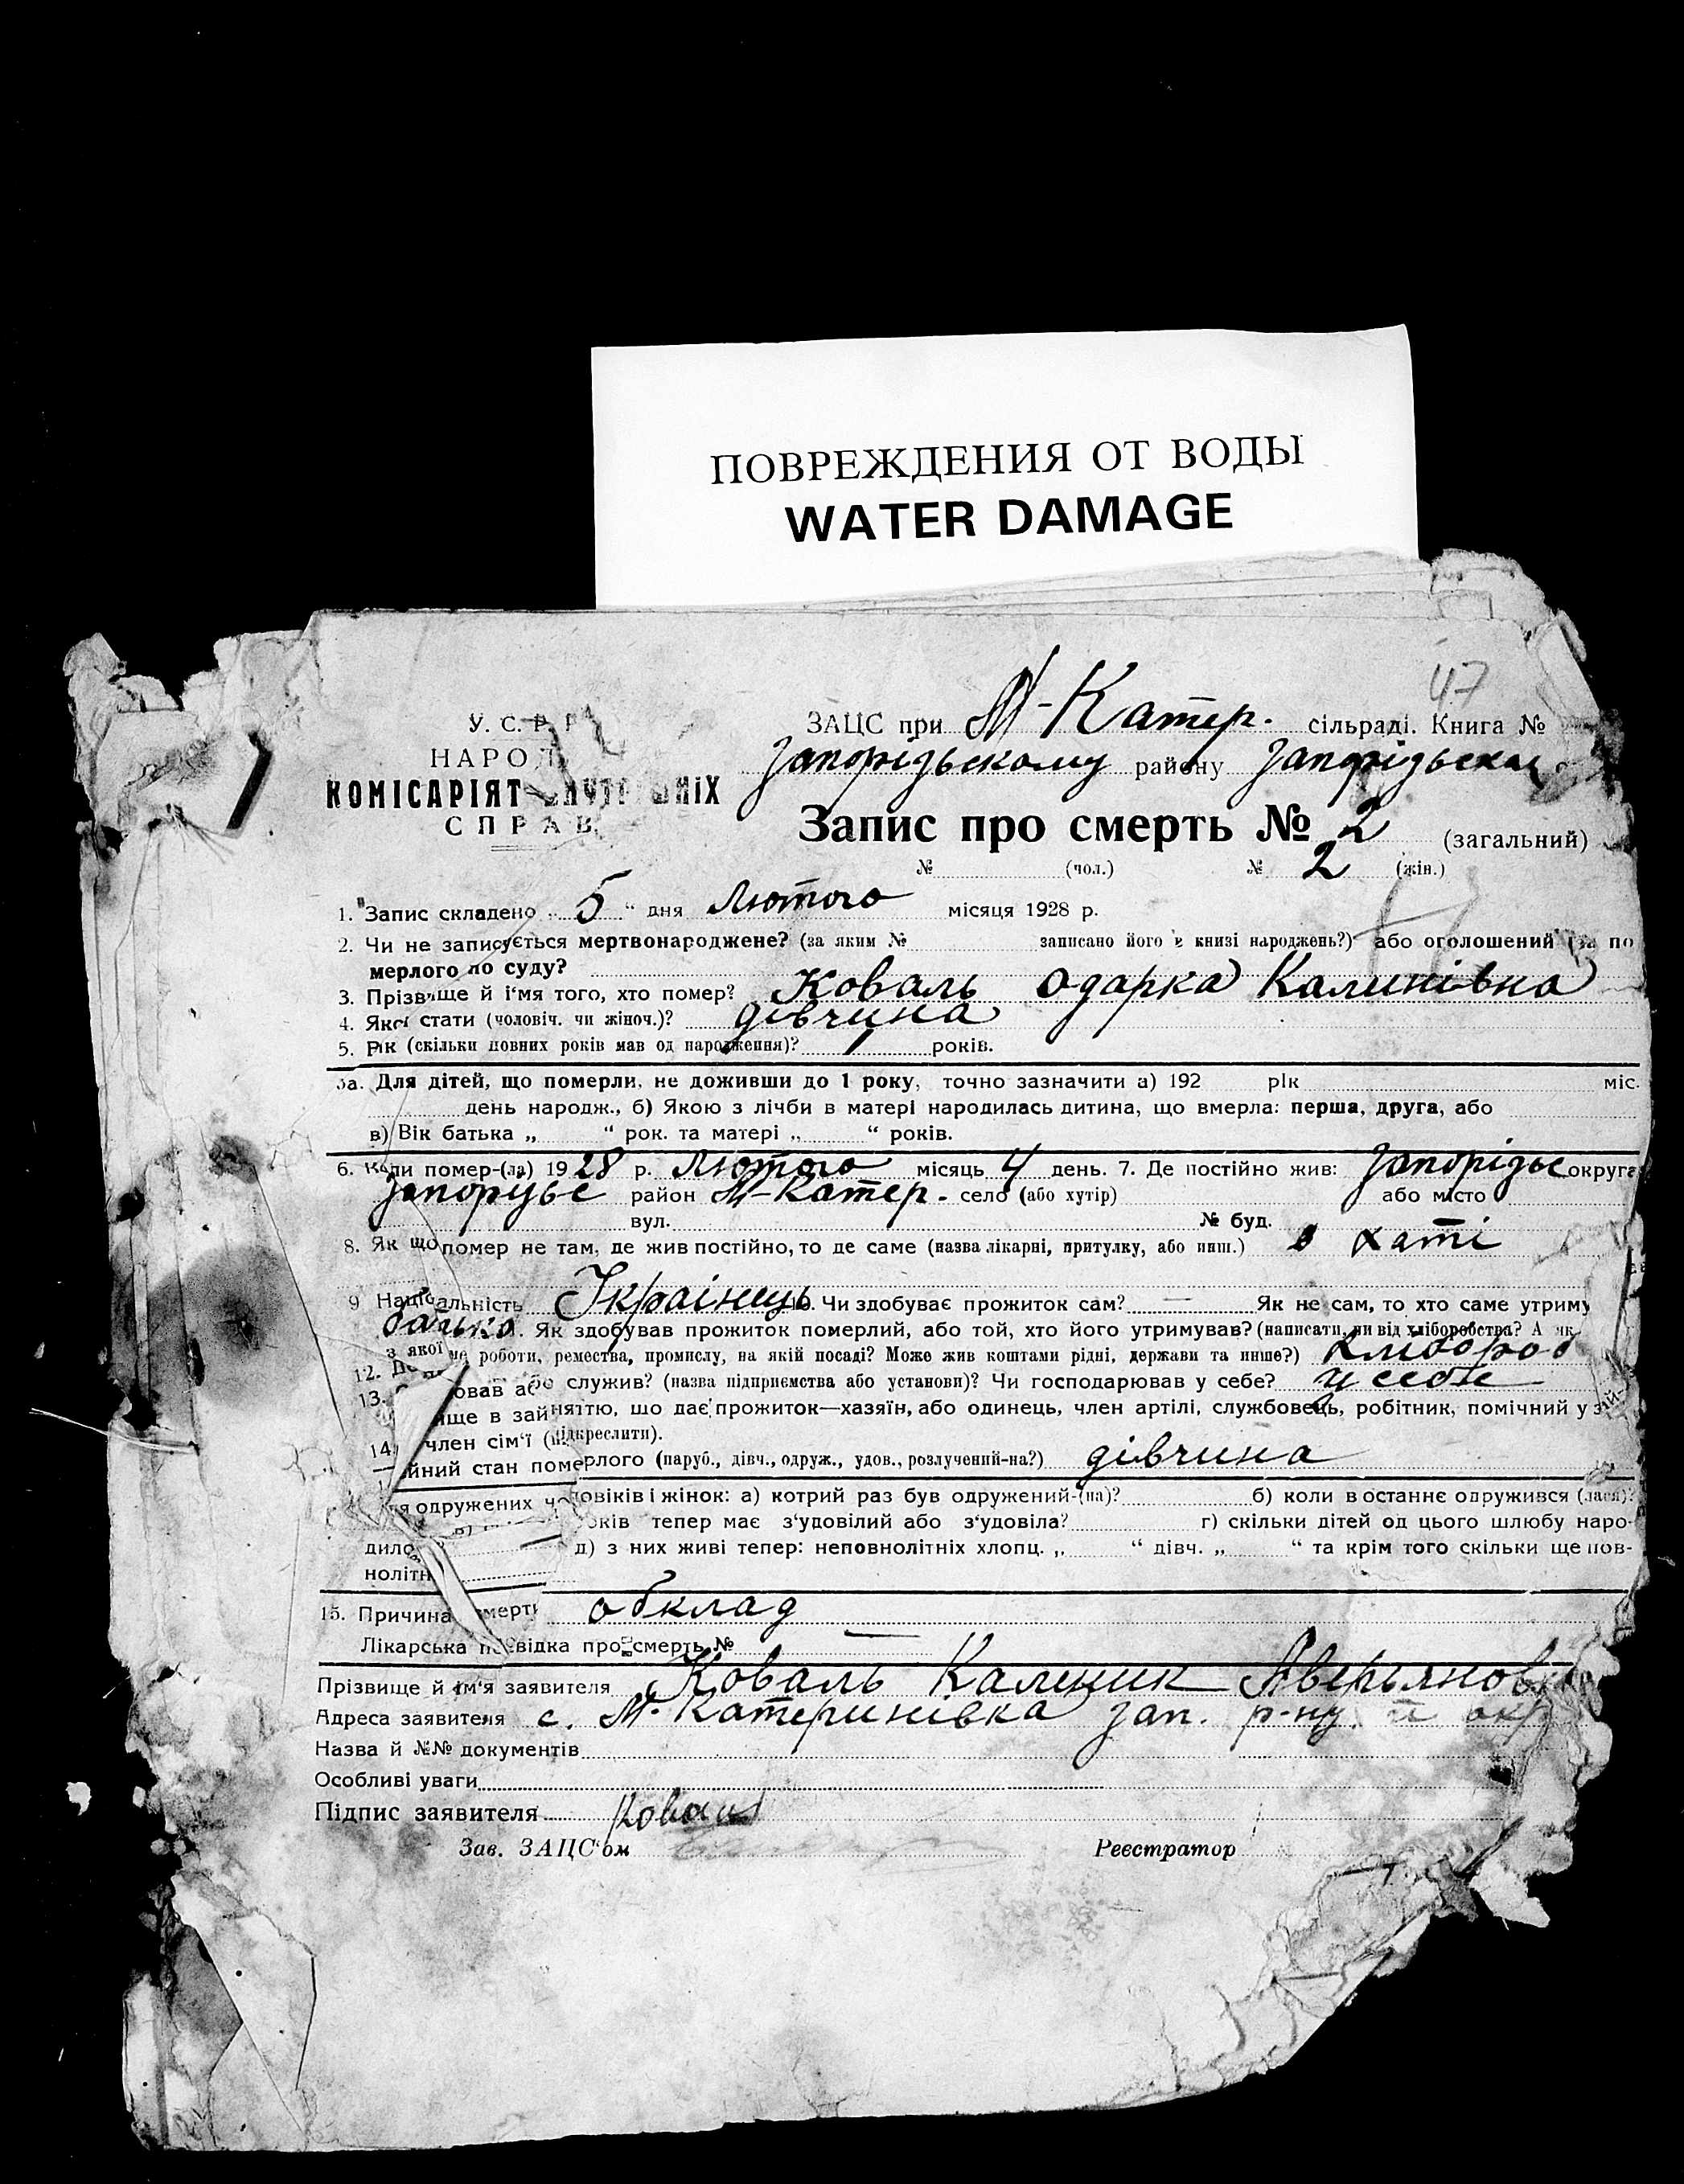 ПОВРЕЖДЕНИЯ ОТ ВОДЫ
WATER DAMAGE
47
У. С. Р. Р.
НАРОД
КОМІСАРІЯТ
СПРАВ
ЗАЦС при М-Катер. сільраді. Книга №
Запорізькому району
Запис про смерть № 2 (загальний)
№ (чол.) № 2 (жін.)
1. Запис складено „ 5 “ дня Лютого місяця 1928 р.
2. Чи не записується мертвонароджене? (за яким № записано його в книзі народжень?) або оголошений (за по
мерлого по суду?
3. Прізвище й ім'я того, хто помер? Коваль Одарка Калинівна
4. Якої стати (чоловіч. чи жіноч.)? дівчина
5. Рік (скільки повних років мав од народження)? 1 років.
5а. Для дітей, що померли, не доживши до 1 року, точно зазначити а) 192 рік міс.
день народж., б) Якою з лічби в матері народилась дитина, що вмерла: перша, друга, або
в) Вік батька „ “ рок. та матері „ “ років.
6. Коли помер-(ла) 1928 р. Лютого місяць 4 день. 7. Де постійно жив: Запорізьс округа
район М-Катер. село (або хутір) або місто
вул. № буд.
8. Як що помер не там, де жив постійно, то де саме (назва лікарні, притулку, або инш.) в хаті
9 Національність Українець 10. Чи здобуває прожиток сам? — Як не сам, то хто саме утриму
батько 11. Як здобував прожиток померлий, або той, хто його утримував? (написати, чи від хліборобства? А як
з якої роботи, ремества, промислу, на якій посаді? Може жив коштами рідні, держави та инше?) хлібороб
12. або служив? (назва підприємства або установи)? Чи господарював у себе? у себе
13. ище в зайняттю, що дає прожиток—хазяїн, або одинець, член артілі, службовець, робітник, помічний у
член сім'ї (підкреслити).
14. йний стан померлого (паруб., дівч., одруж., удов., розлучений-на?) дівчина
я одружених чоловіків і жінок: а) котрий раз був одружений-(на)? б) коли в останнє одружився (лася)?
оків тепер має з'удовілий або з'удовіла? г) скільки дітей од цього шлюбу наро-
дило д) з них живі тепер: неповнолітніх хлопц. „ “ дівч. „ “ та крім того скільки ще пов-
нолітн
15. Причина смерти обклад
Лікарська посвідка про смерть № —
Прізвище й ім'я заявителя Коваль Калиник Аверьянов
Адреса заявителя с. М.-Катеринівка Зап. р-ну й окр
Назва й №№ документів
Особливі уваги
Підпис заявителя Коваль
Зав. ЗАЦС'ом Реєстратор